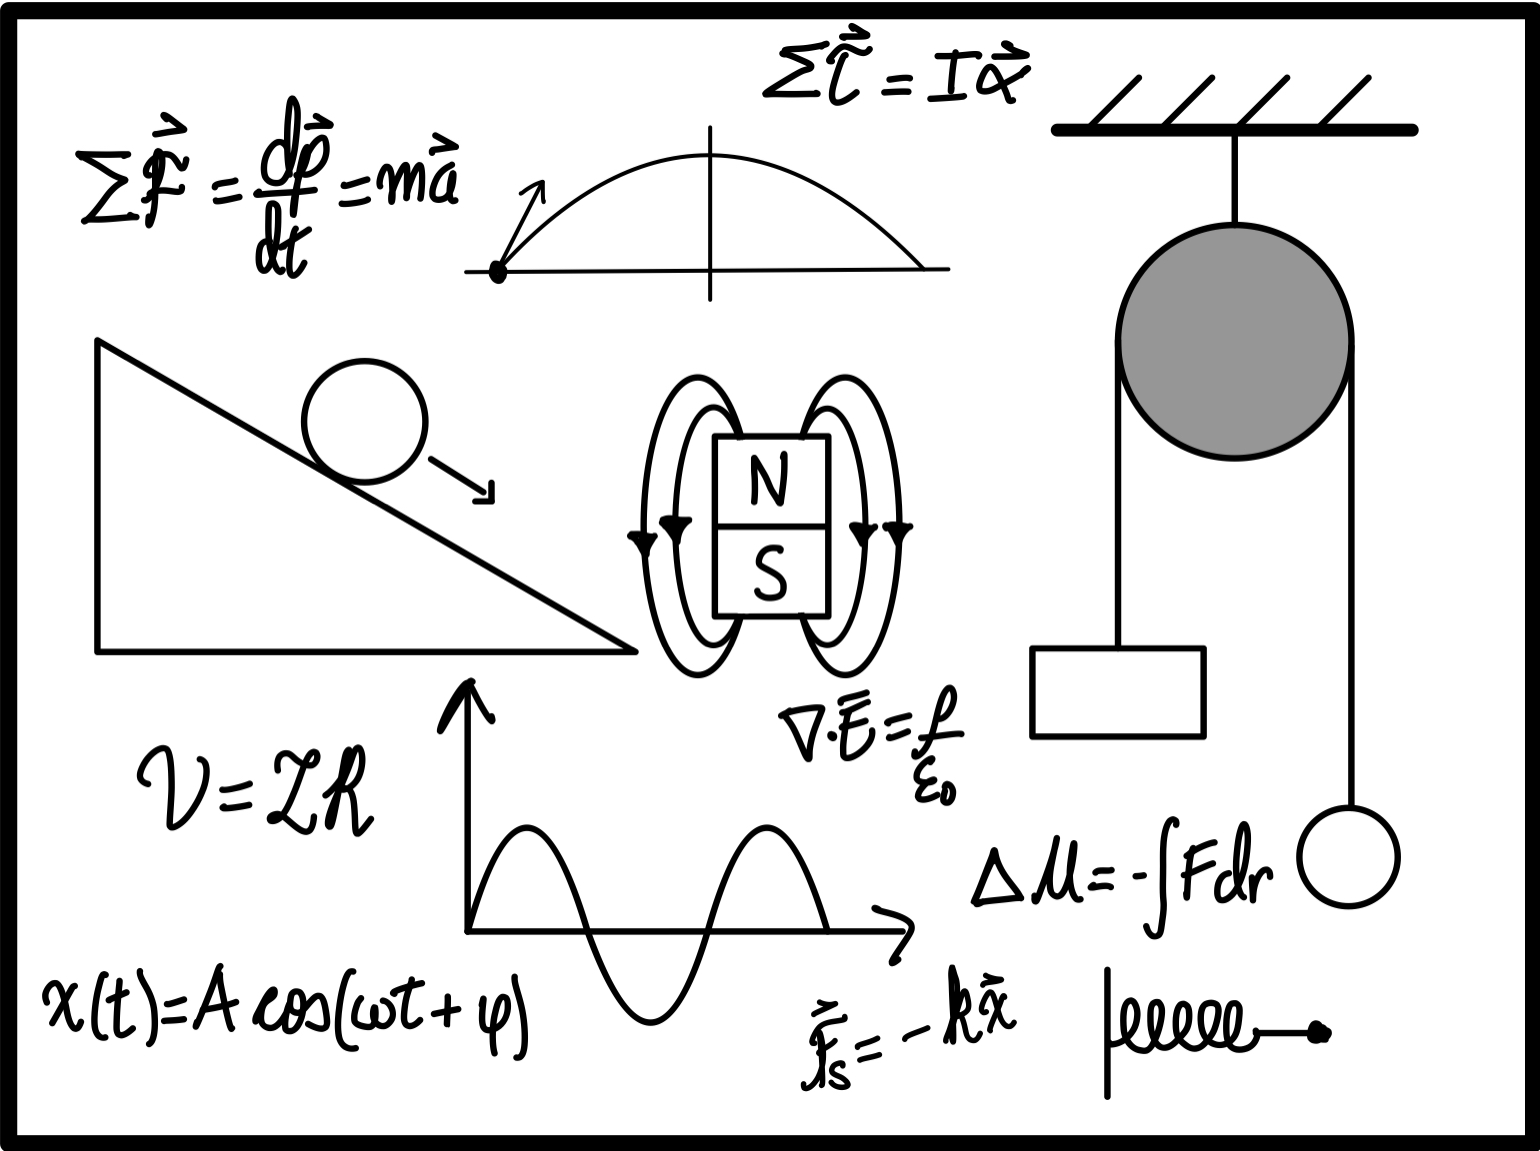 Στ⃗ = Iα⃗
ΣF⃗ = dp⃗/dt = ma⃗
N
S
∇·E⃗ = ρ/ε₀
V = IR
ΔU = -∫Fdr
x(t) = A cos(ωt + φ)
F⃗s = -kx⃗